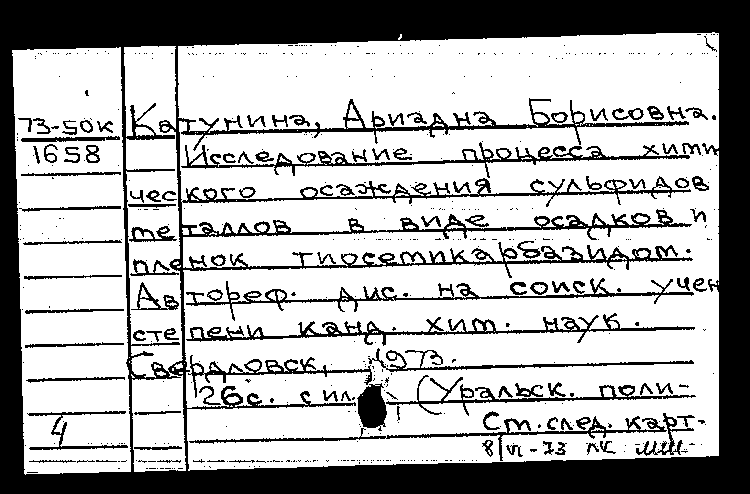 73-50к Катунина, Ариадна Борисовна.
1658 Исследование процесса хими
ческого осаждения сульфидов
металлов в виде осадков и
пленок тиосетикарбазидом.
Автореф. дис. на соиск. учен
степени канд. хим. наук.
Свердловск, 1973.
26с. с ил. (Уральск. поли-
4 См. след. карт.
8/VI-73 ЛК